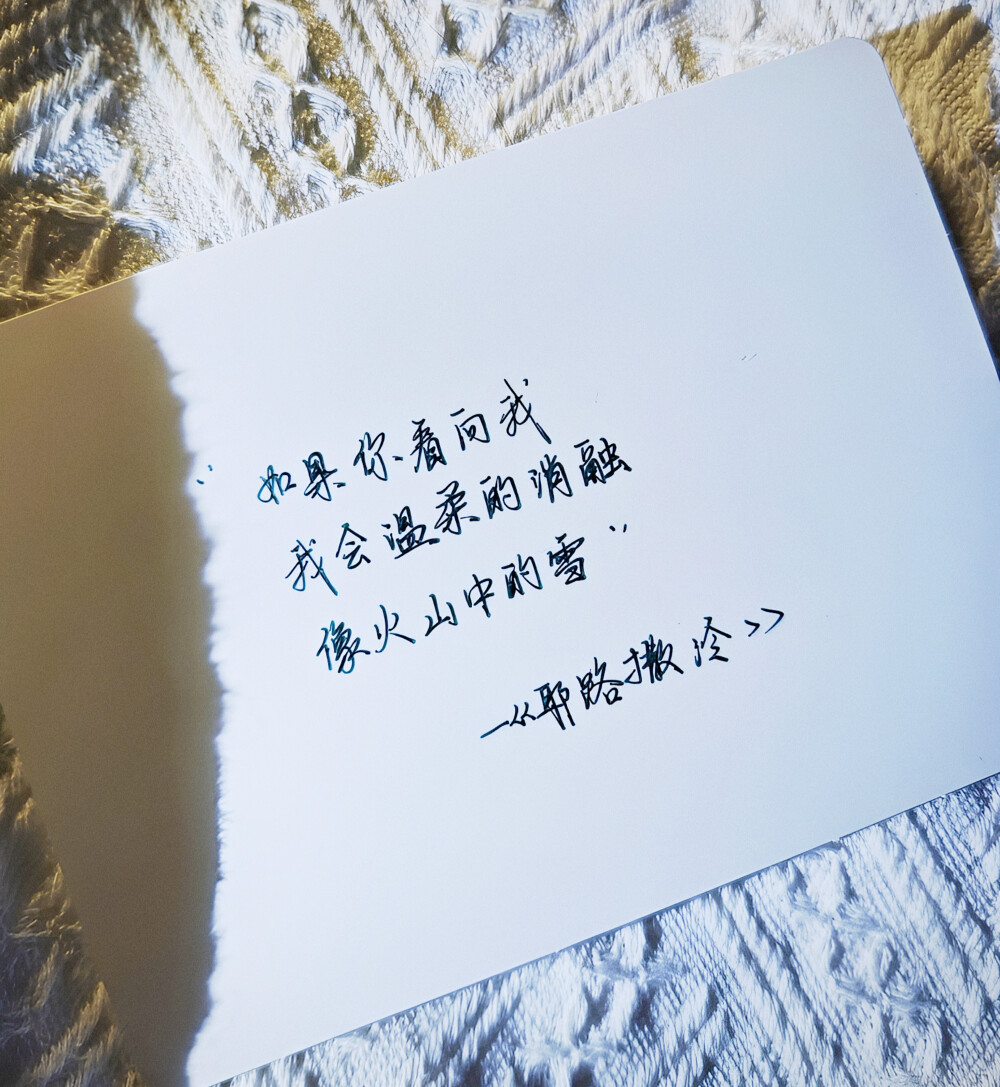 “如果你看向我
我会温柔的消融
像火山中的雪”
—《耶路撒冷》